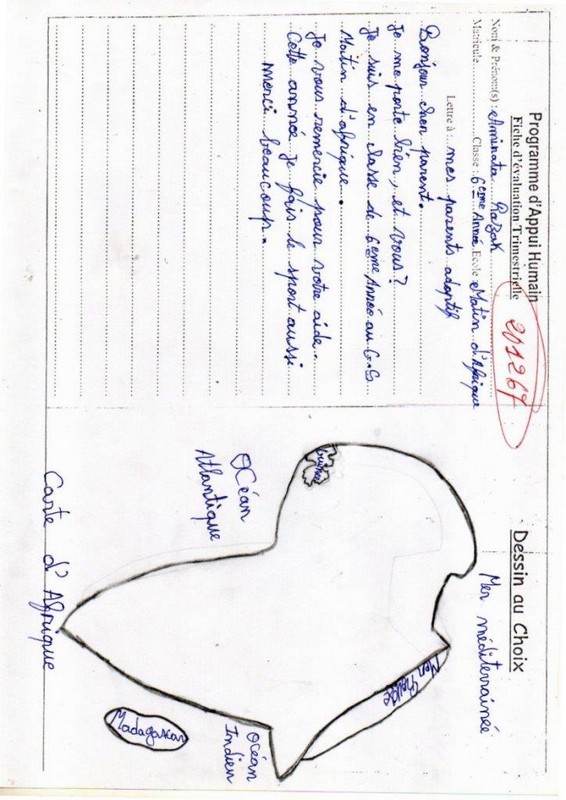 Programme d'Appui Humain
Fiche d'évaluation Trimestrielle
201267
Nom & Prénom(s) : Aminata Razak
Matricule Classe : 6ème Année Ecole Matin d'Afrique
Lettre à : mes parents adoptif
Bonjour cher parent.
Je me porte bien, et vous ?
Je suis en classe de 6ème Année au G.S
Matin d'afrique.
Je vous remercie pour votre aide.
Cette année je fais le sport aussi
merci beaucoup.
Dessin au Choix
Mer méditerrainée
Guinée
Mer Rouge
Océan
Atlantique
Océan
Indien
Madagascar
Carte d'Afrique